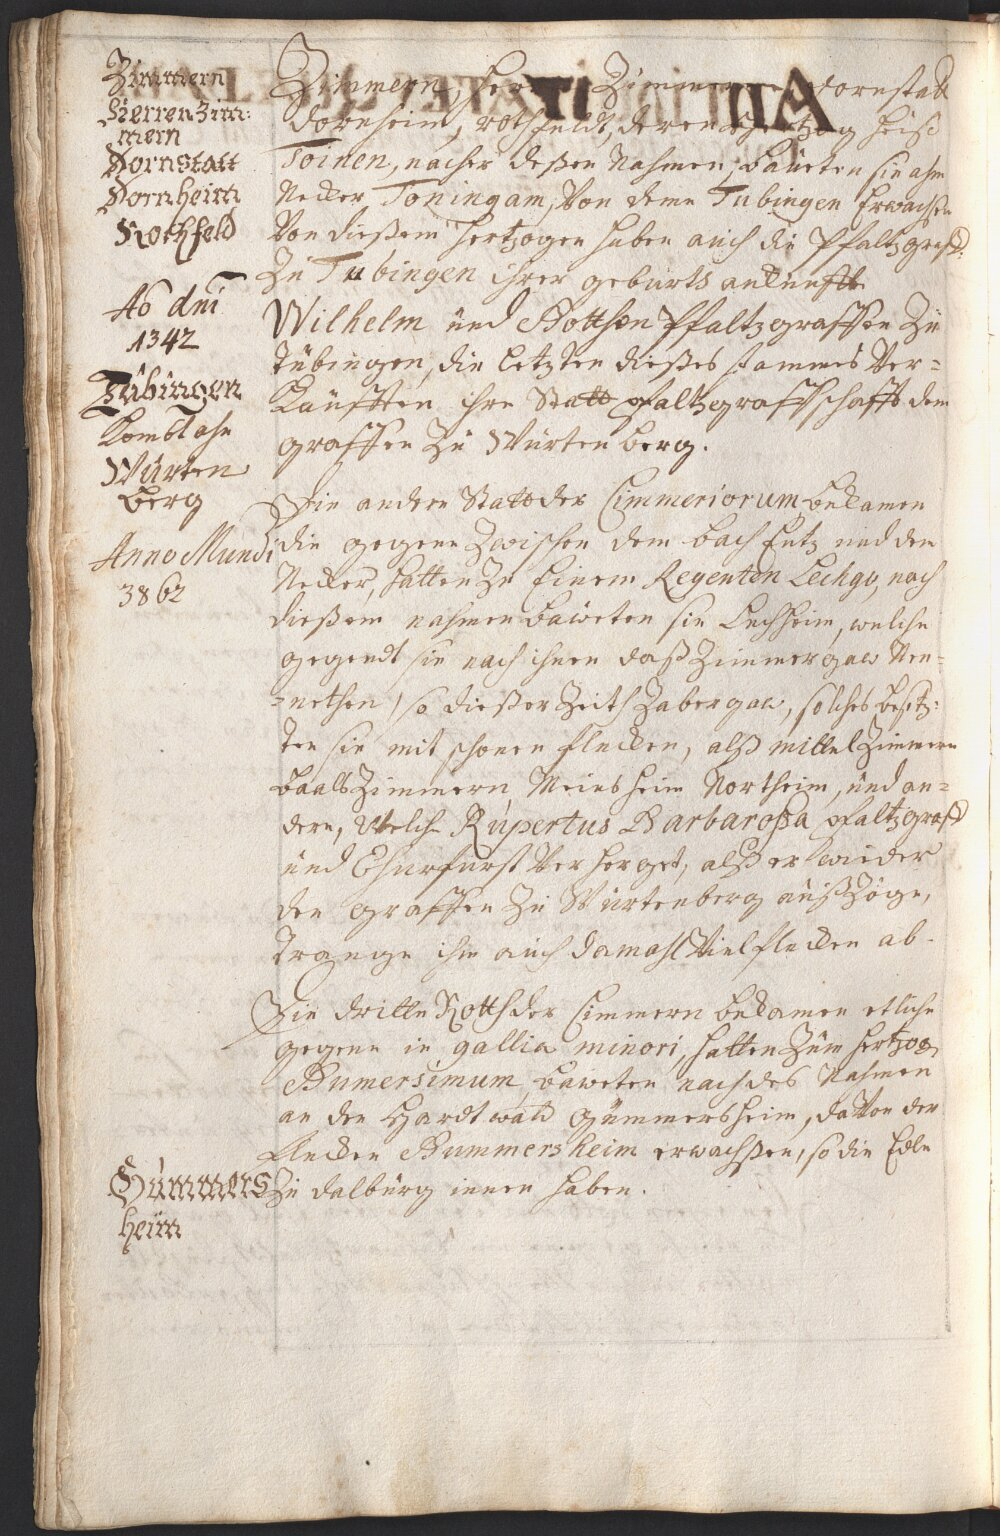 Zimmern
Herren Zim:
mern
Dornstatt
Dornheim
Rothfeld
Ao dni
1342
Tübingen
Kombt ahn
Würten
berg
Anno Mundi
3862
Gümmers
heim
Zimmern, Herren Zimmern, Dornstatt
Dornheim, rothfeldt, deren Hertzog hieß
Toinen, nacher deßen Nahmen, baueten sie ahm
Necker Toningam, Von deme Tubingen Erwachßen
Von dießem Hertzogen haben auch die Pfaltzgraff:
Zu Tubingen ihrer geburts ankunfft
Wilhelm und Gotthen Pfaltzgraffen Zu
Tübingen, die letzten dießes stammes Ver=
Kaufften ihre Statt pfaltzgraffschafft dem
graffen Zu Würtenberg.
Die andere Statt der Cimmeriorum, bekamen
die gegene Zwischen dem bach Entz und dem
Necker, hatten Zu Einem Regenten Lechgo, nach
dießem nahmen baweten sie Lechheim, welche
gegendt sie nach ihnen daß Zimmergaw Nen=
=nethen, so dießer Zeith Zabergaw, solches besetz:
ten sie mit schonen flecken, alß mittel Zimmern
baalß Zimmern Meinsheim Northeim, und an=
dern, Welche Rupertus Barbaroßa pfaltzgraff
und Churfürst Verherget, alß er wieder
den graffen Zu Würtenberg außzoge,
trange ihm auch damahl Viel flecken ab.
Die dritte Rotth der Cimmern bekamen etliche
gegene in gallia minori, hatten Zum Hertzog
Gumersimum, baweten nach des Nahmen
an den Hardtwald Gümmersheim, davon der
flecken Gummersheim erwachßen, so die Edle
Zu dalburg innen haben.